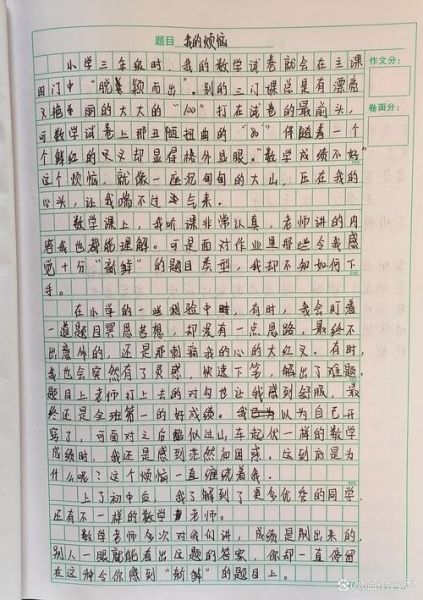 题目 我的烦恼
作文分：
卷面分：
小学三年级时，我的数学试卷就会在主课
四门中“脱颖而出”。别的三门课总是有漂亮
又艳丽的大大的“100”打在试卷的最前头，
可数学试卷上那丑陋扭曲的“80”伴随着一个
个鲜红的叉叉却显得格外显眼。“数学成绩不好”
这个烦恼，就像一座沉甸甸的大山，压在我的
心头，让我喘不过气来。
数学课上，我听课非常认真，老师讲的内
容我也都能理解。可是面对作业里那些令我感
觉十分“新鲜”的题目类型，我却不知如何下
手。
在小学的一些测验中时，有时，我会盯着
一道题目冥思苦想，却没有一点思路，最终不
出意外的，还是那刺痛我的心的大红叉。有时，
我也会突然有了灵感，快速下笔，解出了难题，
题目上老师打上去的对勾也让我感到舒服，最
终还是全班第一的好成绩。我以为自己开
窍了，可面对之后酷似过山车起伏一样的数学
成绩时，我还是感到茫然和困惑。这到底是为
什么呢？这个烦恼一直缠绕着我。
上了初中后，我了解到了更多优秀的同学，
还有不一样的数学老师。
数学老师多次对我们讲，成绩是刷出来的，
别人一眼就能看出这题的答案，你却一直停留
在这种令你感到“新鲜”的题目上。